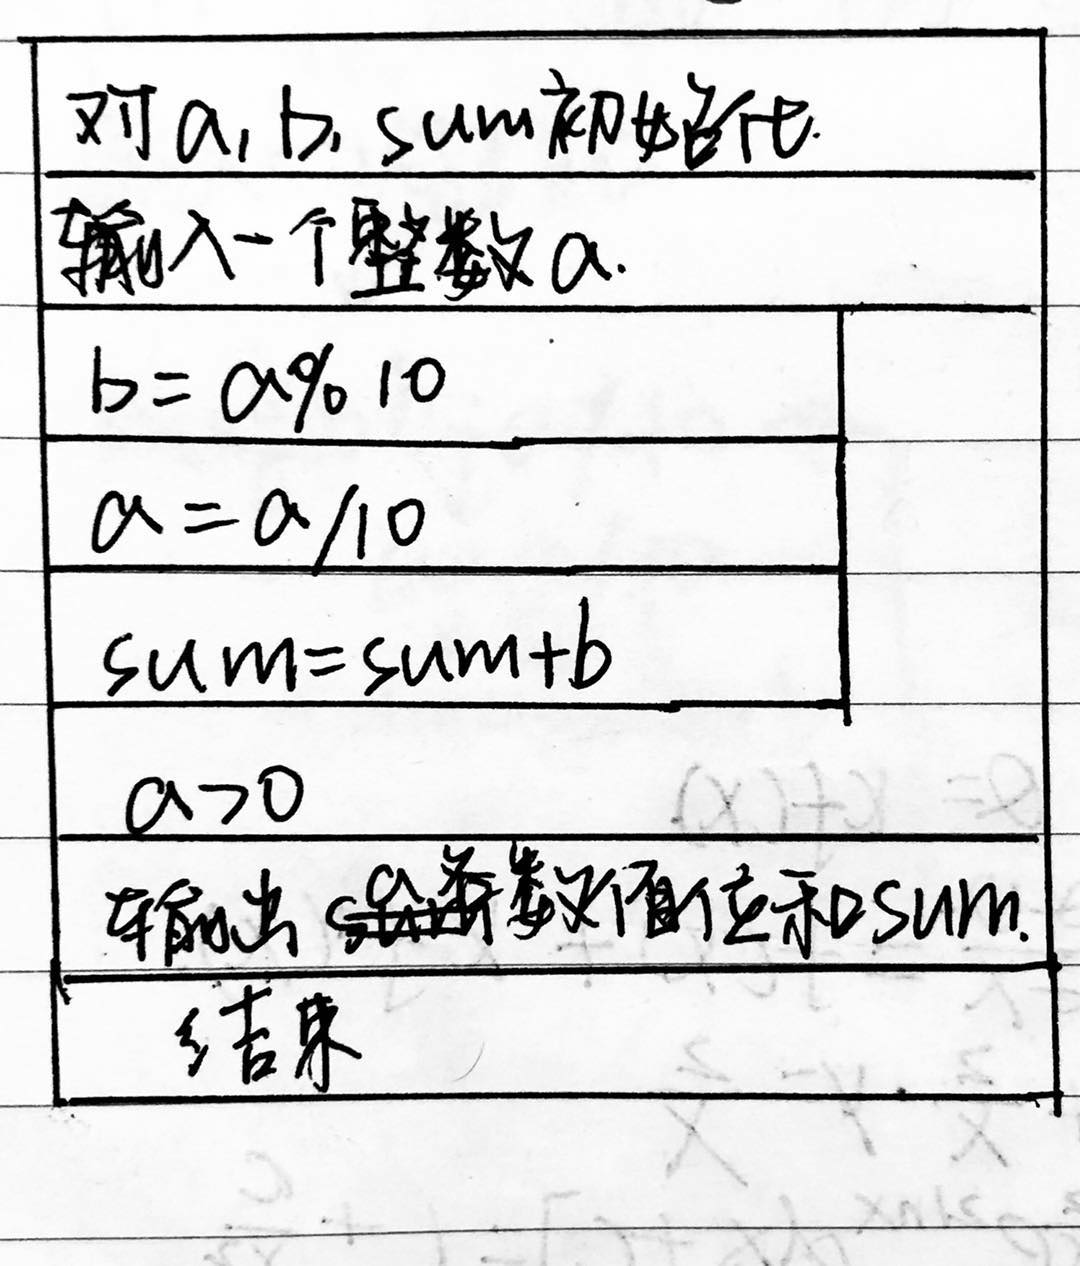 对a,b,sum初始化.
输入一个整数a.
b=a%10
a=a/10
sum=sum+b
a>0
输出 数值位和sum.
结束